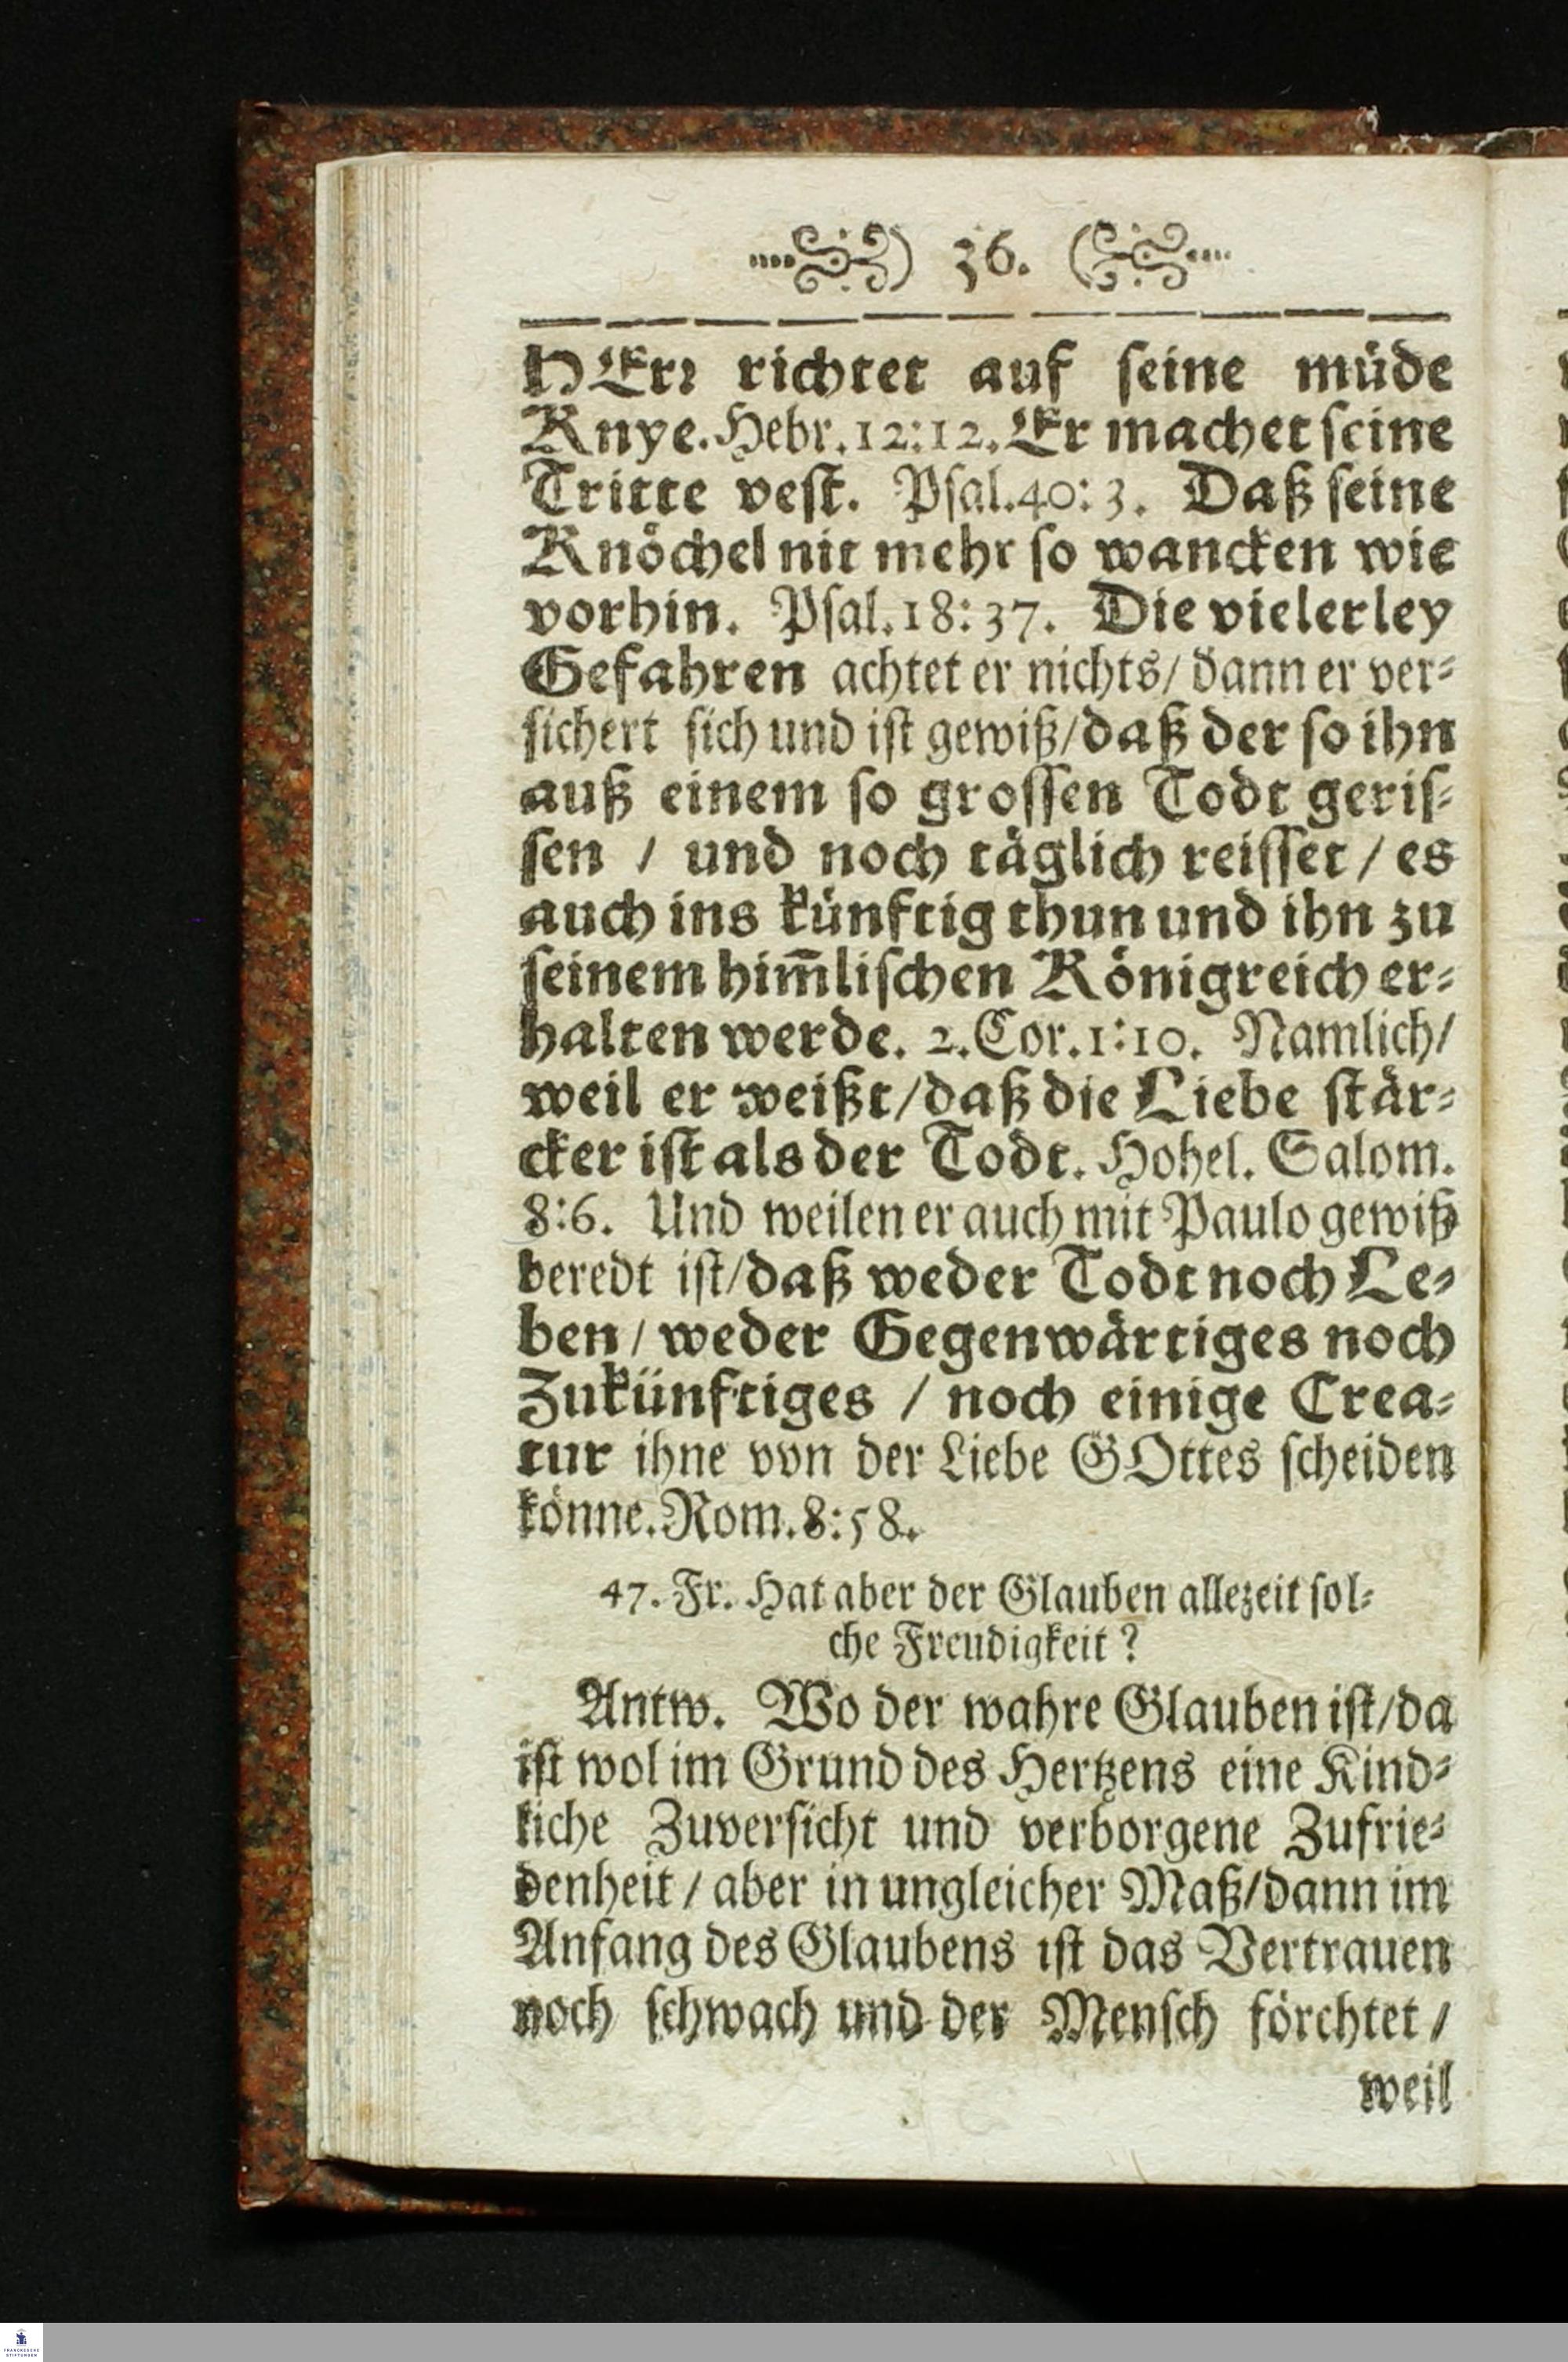 36.
HErꝛ richtet auf ſeine müde
Knye. Hebr. 12:12. Er machet ſeine
Tritte veſt. Pſal. 40:3. Daß ſeine
Knöchel nit mehr ſo wancken wie
vorhin. Pſal. 18:37. Die vielerley
Gefahren achtet er nichts/ dann er ver⸗
ſichert ſich und iſt gewiß/ daß der ſo ihn
auß einem ſo groſſen Todt geriſ⸗
ſen / und noch täglich reiſſet / es
auch ins künftig thun und ihn zu
ſeinem him̄liſchen Königreich er⸗
halten werde. 2. Cor. 1:10. Namlich/
weil er weißt/ daß die Liebe ſtär⸗
cker iſt als der Todt. Hohel. Salom.
8:6. Und weilen er auch mit Paulo gewiß
beredt iſt/ daß weder Todt noch Le⸗
ben / weder Gegenwärtiges noch
Zukünftiges / noch einige Crea⸗
tur ihne von der Liebe GOttes ſcheiden
könne. Rom. 8:58.
47. Fr. Hat aber der Glauben allezeit ſol⸗
che Freudigkeit?
Antw. Wo der wahre Glauben iſt/ da
iſt wol im Grund des Hertzens eine Kind⸗
liche Zuverſicht und verborgene Zufrie⸗
denheit / aber in ungleicher Maß/ dann im
Anfang des Glaubens iſt das Vertrauen
noch ſchwach und der Menſch förchtet /
weil
FRANCKESCHE
STIFTUNGEN